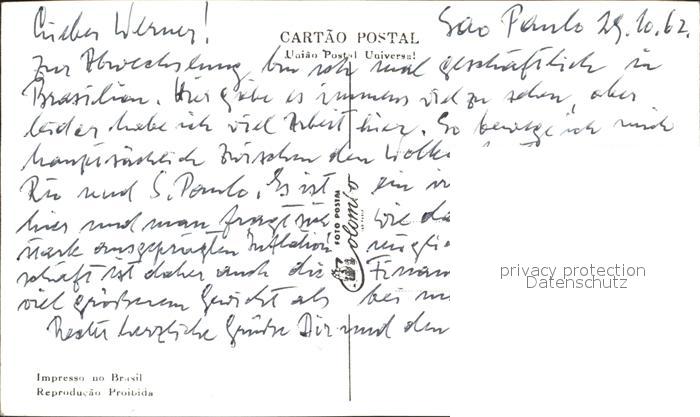 Lieber Werner!
CARTÃO POSTAL
União Postal Universal
Sao Paulo 29.10.62.
Zur Abwechslung bin ich mal geschäftlich in
Brasilien. Hier gäbe es immens viel zu sehen, aber
leider habe ich viel Arbeit hier. So bewege ich mich
hauptsächlich zwischen den Wolke
Rio und S. Paulo. Es ist ein
hier und man fragt sich wie da
stark ausgeprägten Inflation
schaft ist daher auch die Finan
viel grösserem Gewicht als bei un
Recht herzliche Grüsse Dir und den
FOTO POSTAL
Colombo
privacy protection
Datenschutz
Impresso no Brasil
Reprodução Proibida